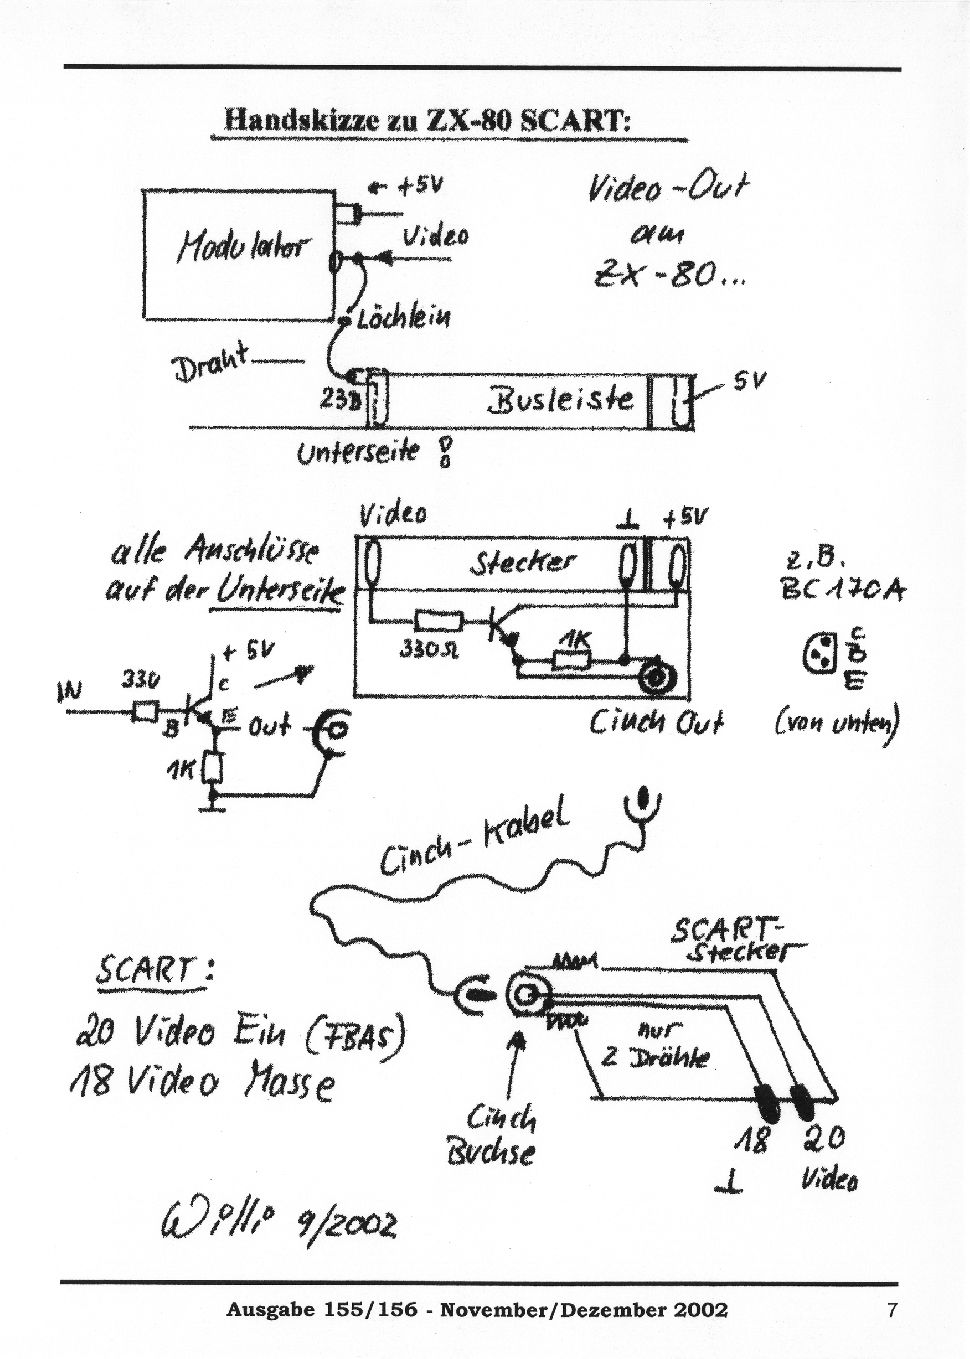 Handskizze zu ZX-80 SCART:
← +5V
Video-Out
am
ZX-80...
Modulator
Video
Löchlein
Draht
23B
Busleiste
5V
Unterseite !
Video
⊥ +5V
alle Anschlüsse
auf der Unterseite
Stecker
z.B.
BC 170A
330Ω
1K
C
B
E
(von unten)
Cinch Out
+ 5V
IN
330
C
B
E
Out
1K
Cinch-Kabel
SCART-
Stecker
SCART:
20 Video Ein (FBAS)
18 Video Masse
nur
2 Drähte
Cinch
Buchse
18 20
⊥ Video
Willi 9/2002
Ausgabe 155/156 - November/Dezember 2002
7